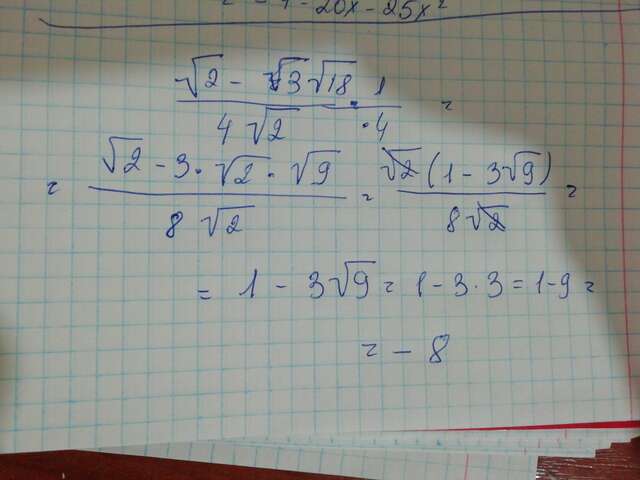 - 20x - 25x²
√2 - √3 √18 · 1
4 √2 · 4 =
= √2 - 3 · √2 · √9 / 8 √2 = √2 (1 - 3√9) / 8√2 =
= 1 - 3√9 = 1 - 3 · 3 = 1 - 9 =
= - 8